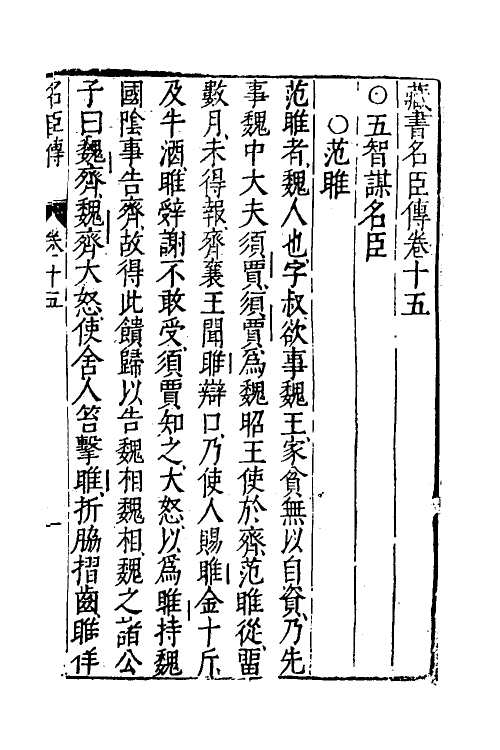 藏書名臣傳卷十五
○五智謀名臣
○范雎
范雎者魏人也字叔欲事魏王家貧無以自資乃先
事魏中大夫須賈須賈爲魏昭王使於齊范雎從留
數月未得報齊襄王聞雎辯口乃使人賜雎金十斤
及牛酒雎辭謝不敢受須賈知之大怒以爲雎持魏
國陰事告齊故得此饋歸以告魏相魏相魏之諸公
子曰魏齊魏齊大怒使舍人笞擊雎折脇摺齒雎佯
名臣傳 卷十五 一